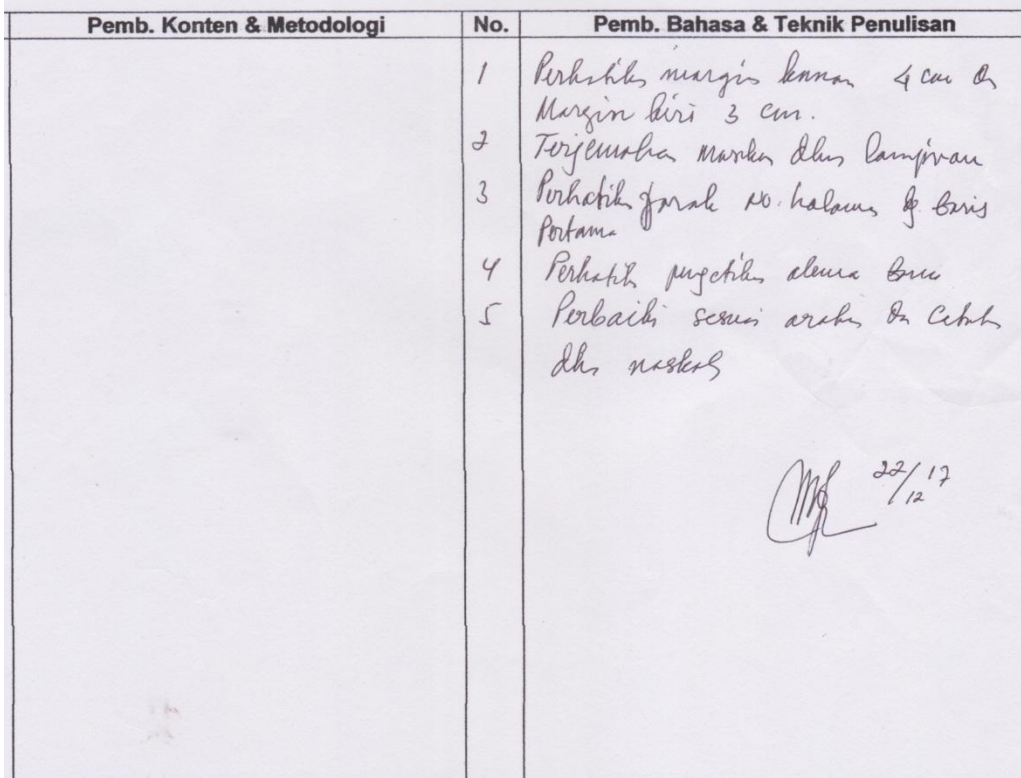 Pemb. Konten & Metodologi No. Pemb. Bahasa & Teknik Penulisan
1 Perhatikn margin kanan 4 cm dn
Margin kiri 3 cm.
2 Terjemahan masukn dlm lampiran
3 Perhatikn jarak no. halaman dg baris
Pertama
4 Perhatikn pengetikn alenia baru
5 Perbaiki sesuai arahn dn
dlm naskah
22/12 17